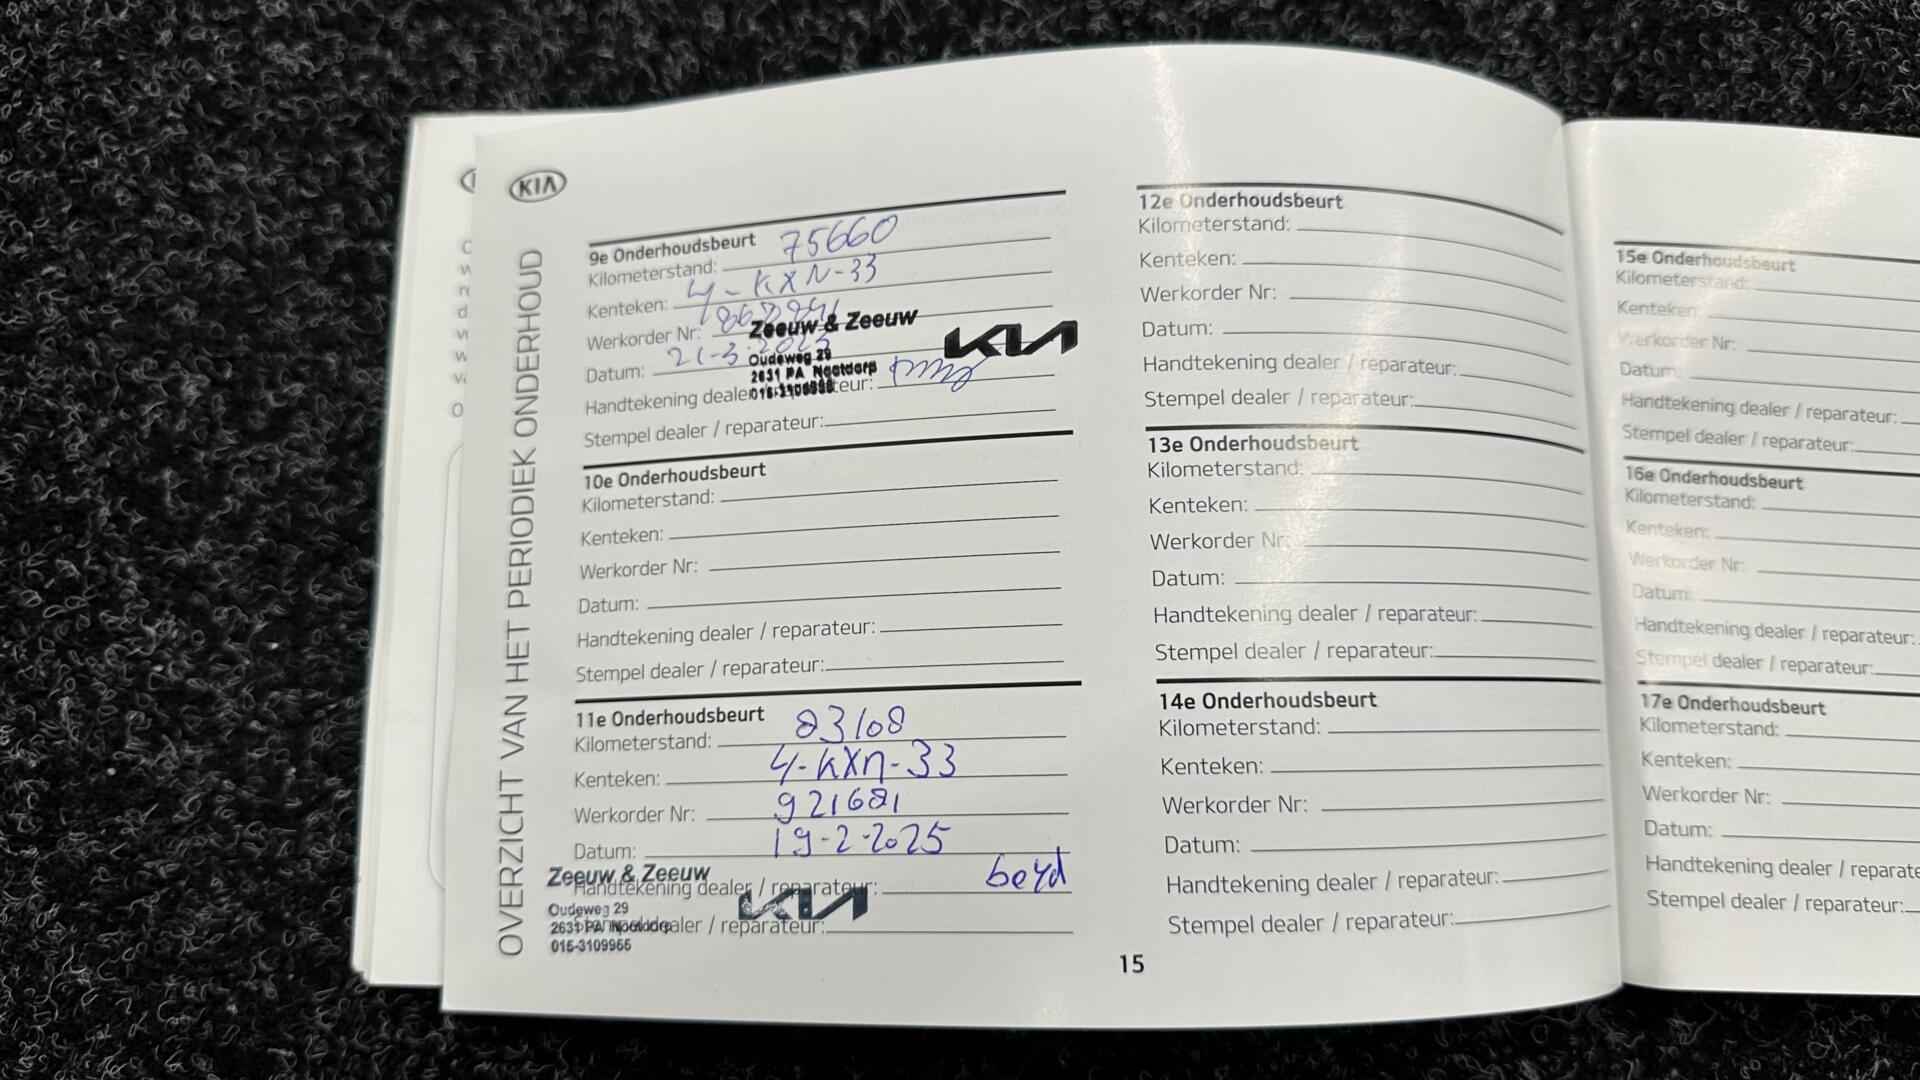 KIA
OVERZICHT VAN HET PERIODIEK ONDERHOUD
9e Onderhoudsbeurt
Kilometerstand: 75660
Kenteken: 4-KXN-33
Werkorder Nr:
Datum: 21-3-2023
Handtekening dealer / reparateur:
Stempel dealer / reparateur:
Zeeuw & Zeeuw
Oudeweg 29
2631 PA Nootdorp
KIA
10e Onderhoudsbeurt
Kilometerstand:
Kenteken:
Werkorder Nr:
Datum:
Handtekening dealer / reparateur:
Stempel dealer / reparateur:
11e Onderhoudsbeurt
Kilometerstand: 83108
Kenteken: 4-KXN-33
Werkorder Nr: 921681
Datum: 19-2-2025
Handtekening dealer / reparateur:
Stempel dealer / reparateur:
Zeeuw & Zeeuw
Oudeweg 29
2631 PA Nootdorp
015-3109955
KIA
12e Onderhoudsbeurt
Kilometerstand:
Kenteken:
Werkorder Nr:
Datum:
Handtekening dealer / reparateur:
Stempel dealer / reparateur:
13e Onderhoudsbeurt
Kilometerstand:
Kenteken:
Werkorder Nr:
Datum:
Handtekening dealer / reparateur:
Stempel dealer / reparateur:
14e Onderhoudsbeurt
Kilometerstand:
Kenteken:
Werkorder Nr:
Datum:
Handtekening dealer / reparateur:
Stempel dealer / reparateur:
15
15e Onderhoudsbeurt
Kilometerstand:
Kenteken:
Werkorder Nr:
Datum:
Handtekening dealer / reparateur:
Stempel dealer / reparateur:
16e Onderhoudsbeurt
Kilometerstand:
Kenteken:
Werkorder Nr:
Datum:
Handtekening dealer / reparateur:
Stempel dealer / reparateur:
17e Onderhoudsbeurt
Kilometerstand:
Kenteken:
Werkorder Nr:
Datum:
Handtekening dealer / reparate
Stempel dealer / reparateur: